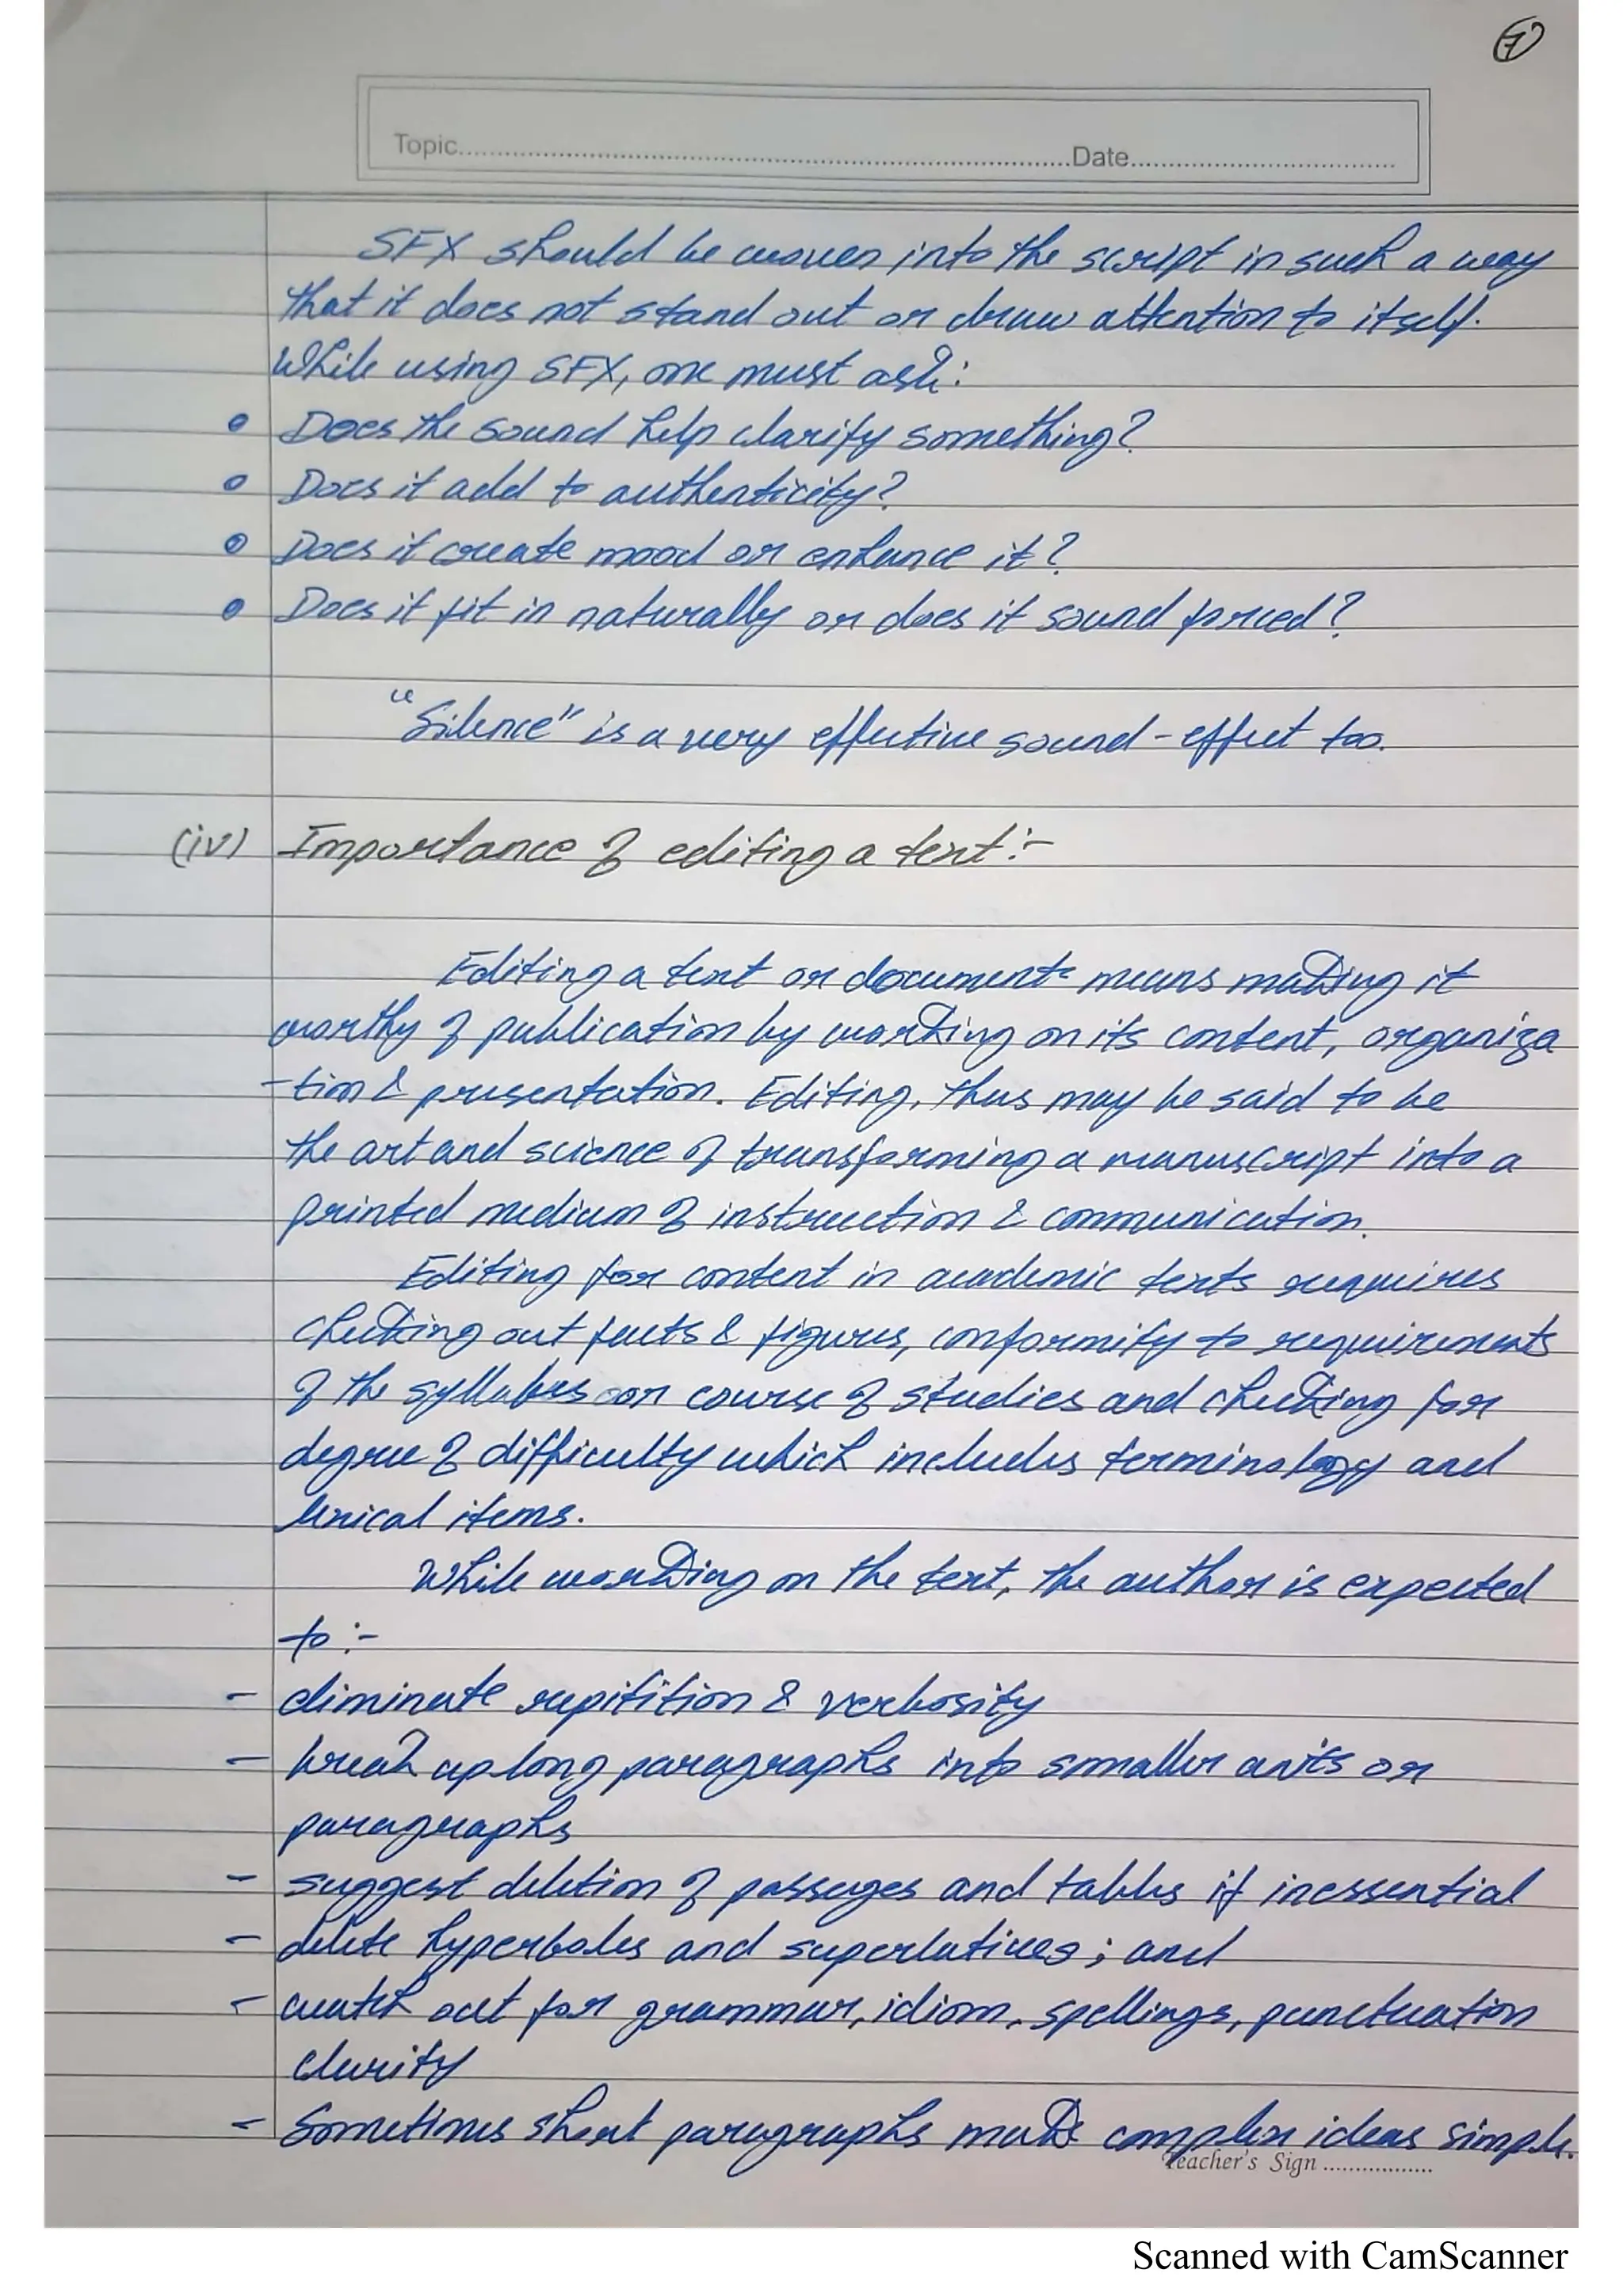 7
Topic..........Date..........
SFX should be woven into the script in such a way
that it does not stand out or draw attention to itself.
While using SFX, one must ask:
• Does the sound help clarify something?
• Does it add to authenticity?
• Does it create mood or enhance it?
• Does it fit in naturally or does it sound forced?
"Silence" is a very effective sound-effect too.
(iv) Importance of editing a text:-
Editing a text or document means making it
worthy of publication by working on its content, organiza
-tion & presentation. Editing, thus may be said to be
the art and science of transforming a manuscript into a
printed medium of instruction & communication.
Editing for content in academic texts requires
checking out facts & figures, conformity to requirements
of the syllabus or course of studies and checking for
degree of difficulty which includes terminology and
lexical items.
While working on the text, the author is expected
to:-
- eliminate repitition & verbosity
- break up long paragraphs into smaller units or
paragraphs
- suggest deletion of passages and tables if inessential
- delete hyperboles and superlatives; and
- watch out for grammar, idiom, spellings, punctuation
clarity
- Sometimes short paragraphs make complex ideas simple.
Teacher's Sign ..........
Scanned with CamScanner